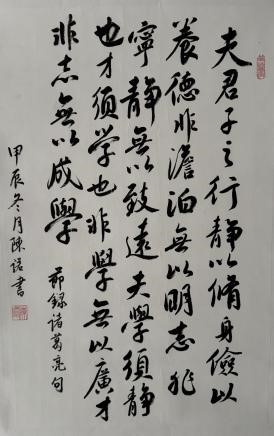 夫君子之行静以脩身儉以
養德非澹泊無以明志非
寧静無以致遠夫學須静
也才須学也非學無以廣才
非志無以成學
節録诸葛亮句
甲辰冬月陳诺書